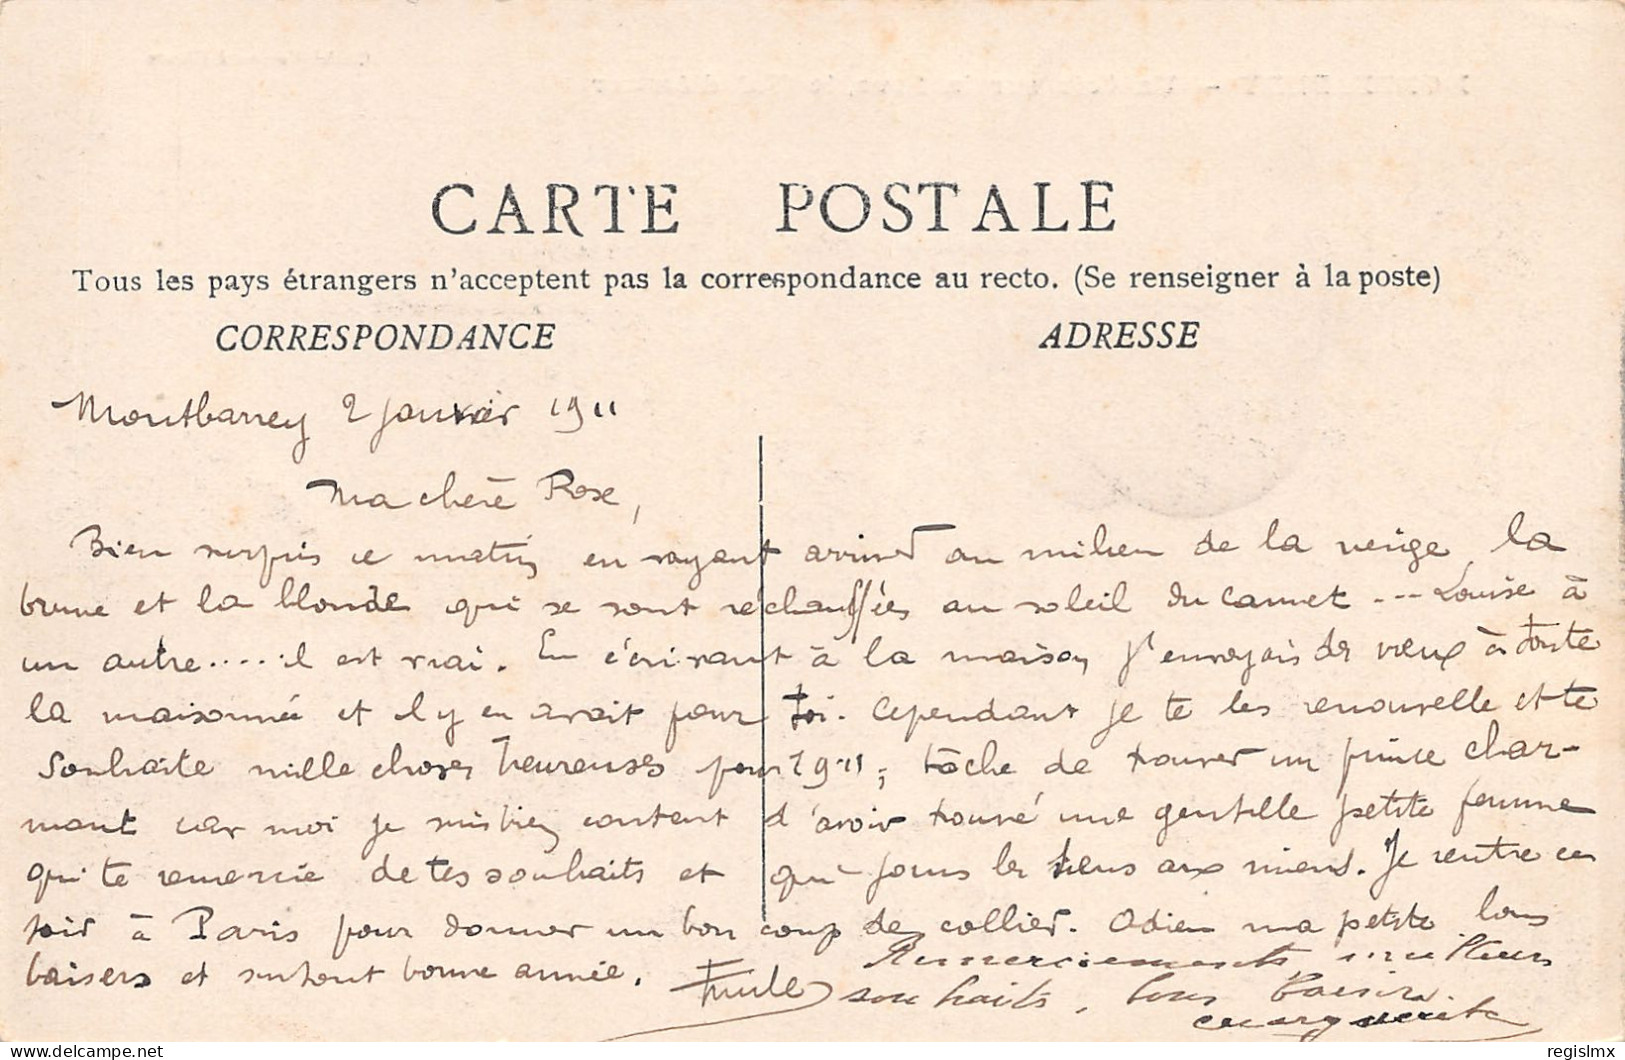 CARTE POSTALE
Tous les pays étrangers n'acceptent pas la correspondance au recto. (Se renseigner à la poste)
CORRESPONDANCE
ADRESSE
Montbarrey 2 janvier 1911
Ma chère Rose,
Bien surpris ce matin en voyant arriver au milieu de la neige la
brune et la blonde qui se sont réchauffées au soleil du Cannet --- Louise à
un autre.... il est vrai. En écrivant à la maison j'envoyais des vœux à toute
la maisonnée et il y en avait pour toi. Cependant je te les renouvelle et te
souhaite mille choses heureuses pour 1911; tâche de trouver un prince char-
mant car moi je suis bien content d'avoir trouvé une gentille petite femme
qui te remercie de tes souhaits et qui joins les siens aux miens. Je rentre ce
soir à Paris pour donner un bon coup de collier. Adieu ma petite bons
baisers et surtout bonne année.
Remerciements, meilleurs
souhaits, bons baisers.
Marguerite
regislmx